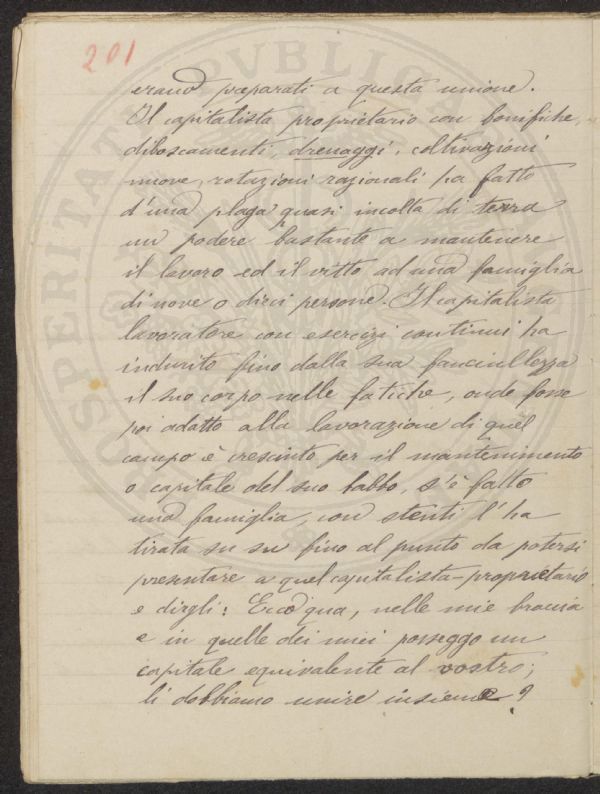 201
erano preparati a questa unione.
Il capitalista proprietario con bonifiche,
diboscamenti, drenaggi, coltivazioni
nuove, rotazioni razionali ha fatto
d'una plaga quasi incolta di terra
un podere bastante a mantenere
il lavoro ed il vitto ad una famiglia
di nove o dieci persone. Il capitalista
lavoratore con esercizi continui ha
indurito fino dalla sua fanciullezza
il suo corpo nelle fatiche, onde fosse
poi adatto alla lavorazione di quel
campo è cresciuto per il mantenimento
o capitale del suo babbo, s'è fatto
una famiglia, con stenti l'ha
tirata su su fino al punto da potersi
presentare a quel capitalista-proprietario
e dirgli: Ecco qua, nelle mie braccia
e in quelle dei miei posseggo un
capitale equivalente al vostro;
li dobbiamo unire insieme?
PUBLICA
PROSPERITAS